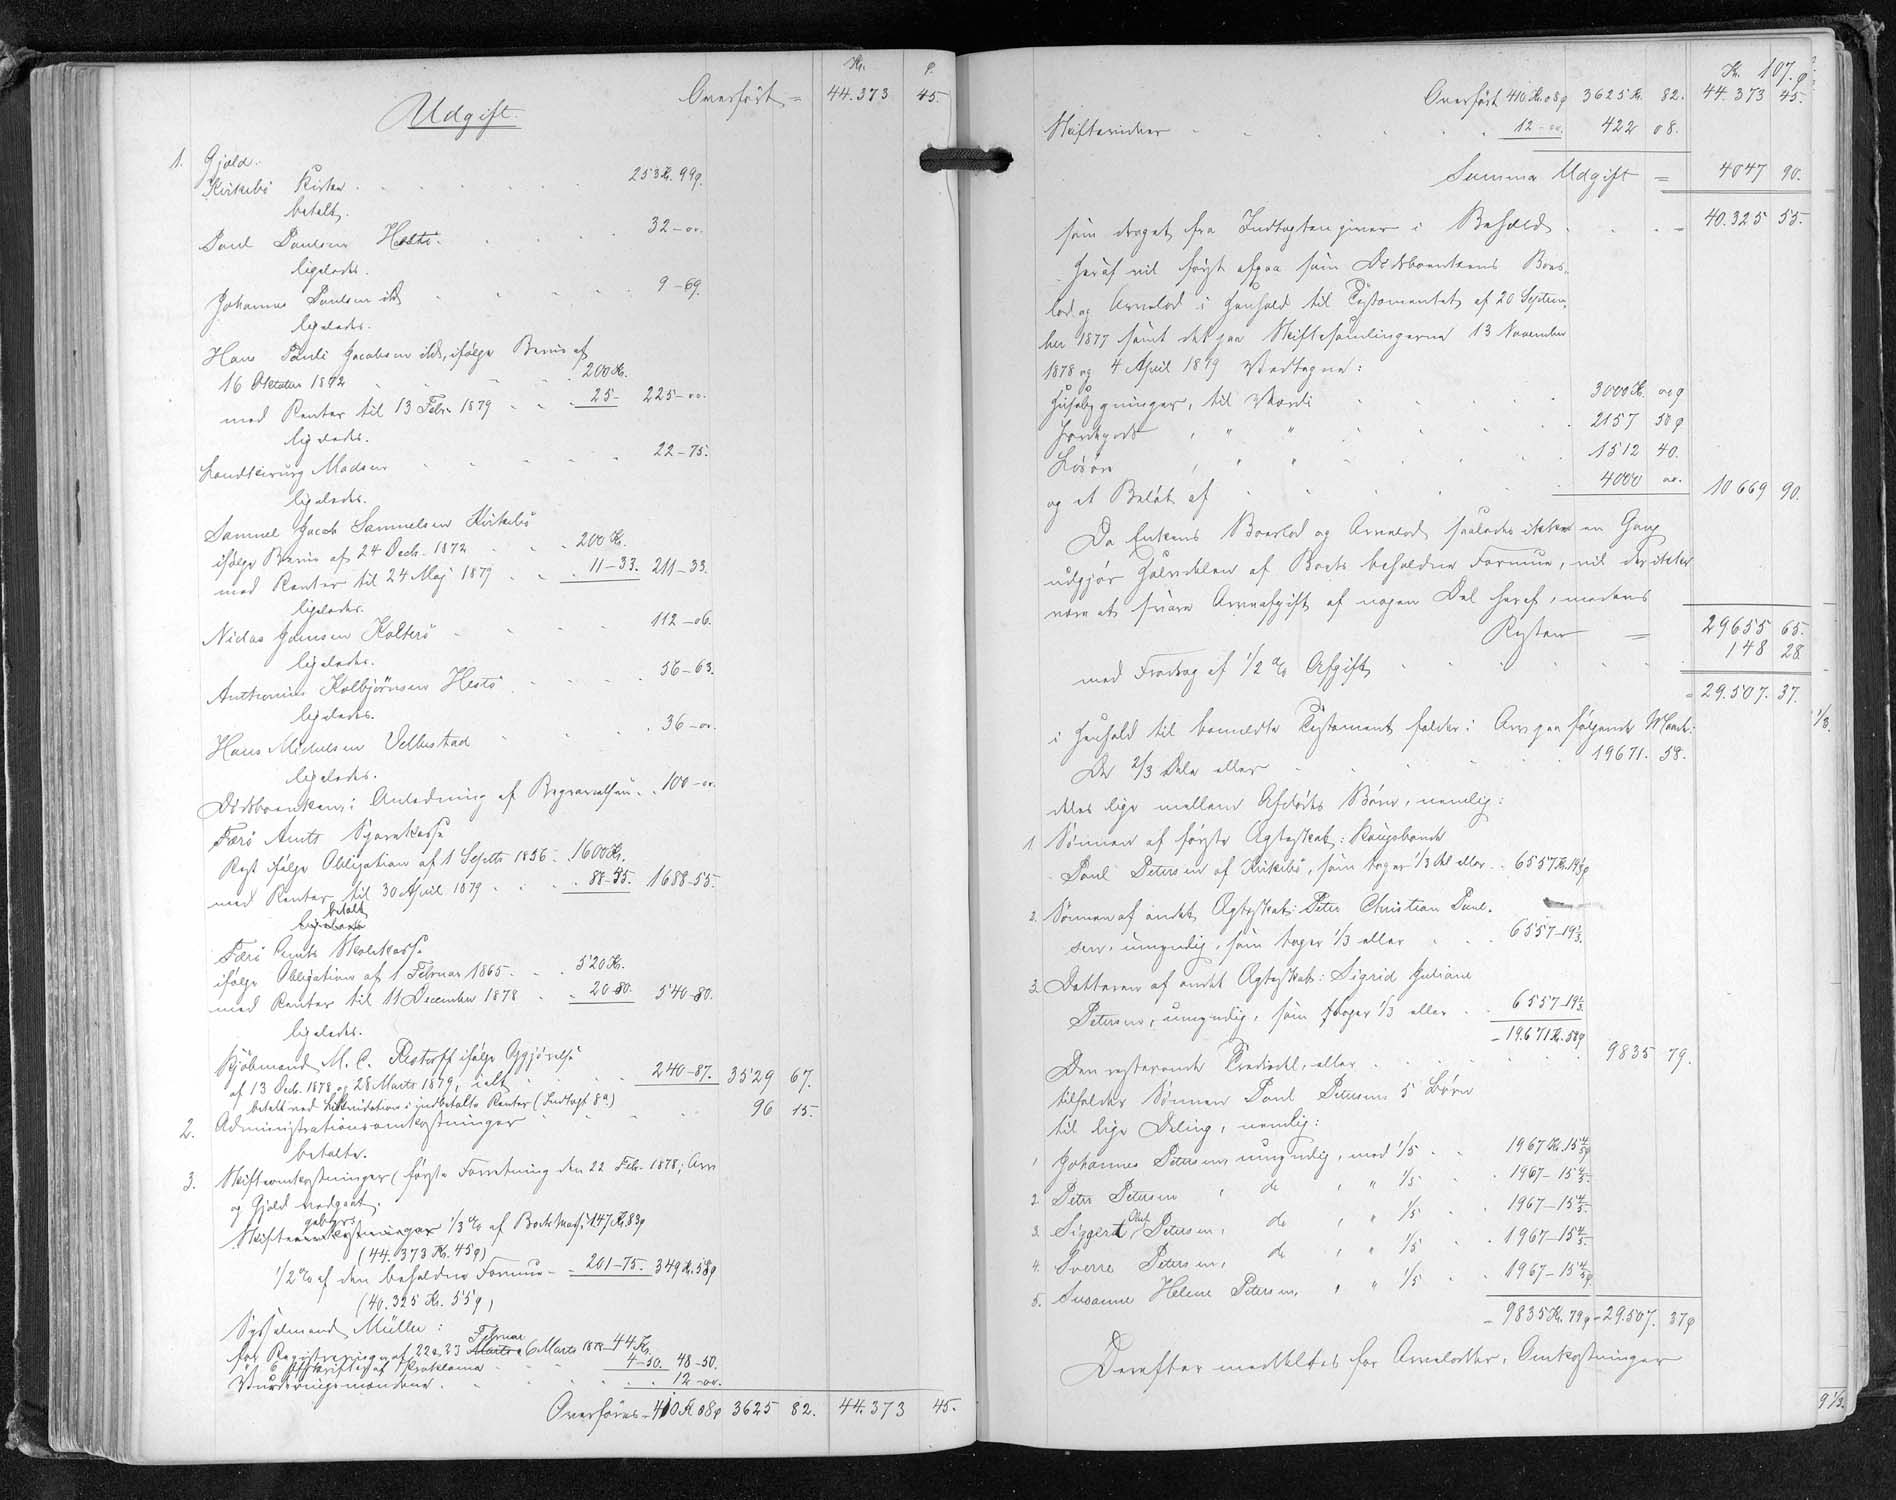 Kr. P.
Overført = 44.373 45.
Udgift.
1. Gjæld.
Kirkebø Kirke 253 Kr. 99 p.
betalt.
Poul Poulsen Hestø. 32 - 00.
ligeledes.
Johannes Poulsen ibd 9 - 69.
ligeledes.
Hans Pauli Jacobsen ibd, ifølge Bevis af
16 Oktober 1872 200 Kr.
med Renter til 13 Febr. 1879 25 - 225 - 00.
ligeledes.
Landkirurg Madsen 22 - 75.
ligeledes.
Samuel Jacob Samuelsen Kirkebø
ifølge Bevis af 24 Decb. 1872 200 Kr.
med Renter til 24 Maj 1879 11 - 33. 211 - 33.
ligeledes.
Niclas Joensen Kolterø 112 - 06.
ligeledes.
Anthonius Kolbjørnsen Hestø 56 - 63.
ligeledes.
Hans Michelsen Velbestad 36 - 00.
ligeledes.
Dødsboenken i Anledning af Begravelsen 100 - 00.
Færø Amts Sparekasse
Rest ifølge Obligation af 1 Septb. 1856 1600 Kr.
med Renter til 30 April 1879 88 - 55. 1688 - 55.
betalt
ligeledes
Færø Amts Skolekasse
ifølge Obligation af 1 Februar 1865 520 Kr.
med Renter til 11 December 1878 20 - 80. 540 - 80.
ligeledes.
Kjøbmand M. C. Restorff ifølge Opgjørelse
af 13 Decb. 1878 og 28 Marts 1879, ialt 240 - 87. 3529 67.
betalt ved Likvidation i indbetalte Renter (Indtægt 8 a.)
2. Administrationsomkostninger 96 15.
betalte.
3. Skifteomkostninger (første Forretning den 22 Febr. 1878; Arv
og Gjæld vedgaaet.
gebyr
Skifteomkostninger 1/3 % af Boets Masse 147 Kr. 83 p
(44.373 Kr. 45 p)
1/2 % af den beholdne Formue - 201 - 75. 349 Kr. 58 p
(40.325 Kr. 55 p)
Sysselmand Müller:
Februar
for Registreringer af 22 a. 23 Marts a 6 Marts 1878 44 Kr.
" 6 Afskrifter af Proklama 4 - 50. 48 - 50.
Vurderingsmændene 12 - 00.
Overføres 410 Kr 08 p 3625 82. 44.373 45.
107.
Kr. p
Overført 410 Kr. 08 p 3625 Kr. 82. 44.373 45.
Skiftevidner 12 - 00. 422 08.
Summa Udgift = 4047 90.
som draget fra Indtægten giver i Behold 40.325 55.
Heraf vil først afgaa som Dødsboenkens Boes-
lod og Arvelod i Henhold til Testamentet af 20 Septem-
ber 1877 samt det paa Skiftesamlingerne 13 November
1878 og 4 April 1879 Vedtagne:
Husebygninger, til Værdi 3000 Kr. 00 p
Jordegods , " " 2157 50 p
Løsøre , " " 1512 40.
og et Beløb af 4000 00. 10669 90.
Da Enkens Boeslod og Arvelod saaledes ikke en Gang
udgjør Halvdelen af Boets beholdne Formue, vil der ikke
være at svare Arveafgift af nogen Del heraf, medens
Resten = 29655 65.
med Fradrag af 1/2 % Afgift 148 28.
= 29.507. 37.
i Henhold til bemeldte Testament falder i Arv paa følgende Maade:
De 2/3 Dele eller 19671. 58.
deles lige mellem Afdødes Børn, nemlig:
1. Sønnen af første Ægteskab: Kongsbonde
Poul Petersen af Kirkebø, som tager 1/3 Del eller 6557 Kr. 19 1/3 p
2. Sønnen af andet Ægteskab: Peter Christian Poul-
sen, umyndig, som tager 1/3 eller 6557 - 19 1/3.
3. Datteren af andet Ægteskab: Sigrid Juliane
Petersen, umyndig, som tager 1/3 eller 6557 - 19 1/3.
- 19.671 Kr. 58 p
Den resterende Trediedel, eller 9835 79.
tilfalder Sønnen Poul Petersens 5 Børn
til lige Deling, nemlig:
1 Johannes Petersen umyndig, med 1/5 1967 Kr. 15 4/5 p
2. Peter Petersen , do , " 1/5 1967 - 15 4/5.
3. Siggert Petersen, do , " 1/5 1967 - 15 4/5.
4. Sverre Petersen, do , " 1/5 1967 - 15 4/5.
5. Susanne Helene Petersen, , " 1/5 1967 - 15 4/5 p
- 9835 Kr. 79 p = 29.507. 37 p
Derefter meddeltes for Arvelodder, Omkostninger
1/3.
9 1/3.